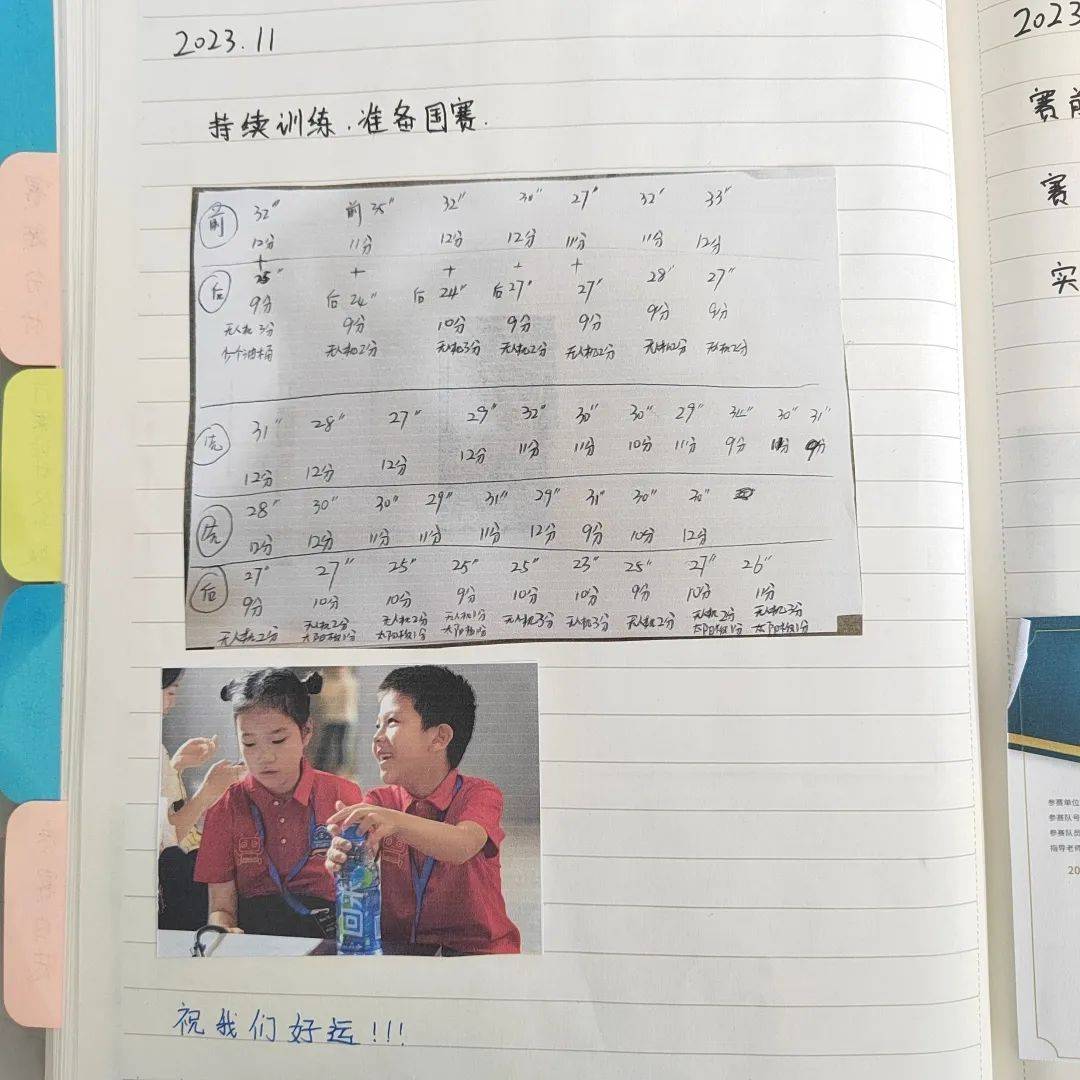 2023.11
持续训练,准备国赛.
前 32" 前 35" 32" 30" 27" 32" 33"
12分 11分 12分 12分 11分 11分 12分
+ + + + +
后 25" 后 24" 后 24" 后 27" 27" 28" 27"
9分 9分 10分 9分 9分 9分 9分
无人机3分 无人机2分 无人机3分 无人机2分 无人机2分 无人机2分 无人机2分
油桶
31" 28" 27" 29" 32" 30" 30" 29" 30" 31"
12分 12分 12分 12分 11分 11分 10分 11分 9分 11分 9分
28" 30" 30" 29" 31" 29" 31" 30" 30"
12分 12分 11分 11分 11分 12分 9分 10分 12分
后 27" 27" 25" 25" 25" 23" 25" 27" 26"
9分 10分 10分 9分 10分 10分 9分 10分 11分
无人机2分 无人机2分 无人机2分 无人机1分 无人机3分 无人机3分 无人机2分 无人机2分 无人机3分
太阳板1分 太阳板1分 太阳板1分 太阳板1分 太阳板1分
祝我们好运!!!
2023
赛前
赛
实
参赛单位
参赛队号
参赛队员
指导老师
20